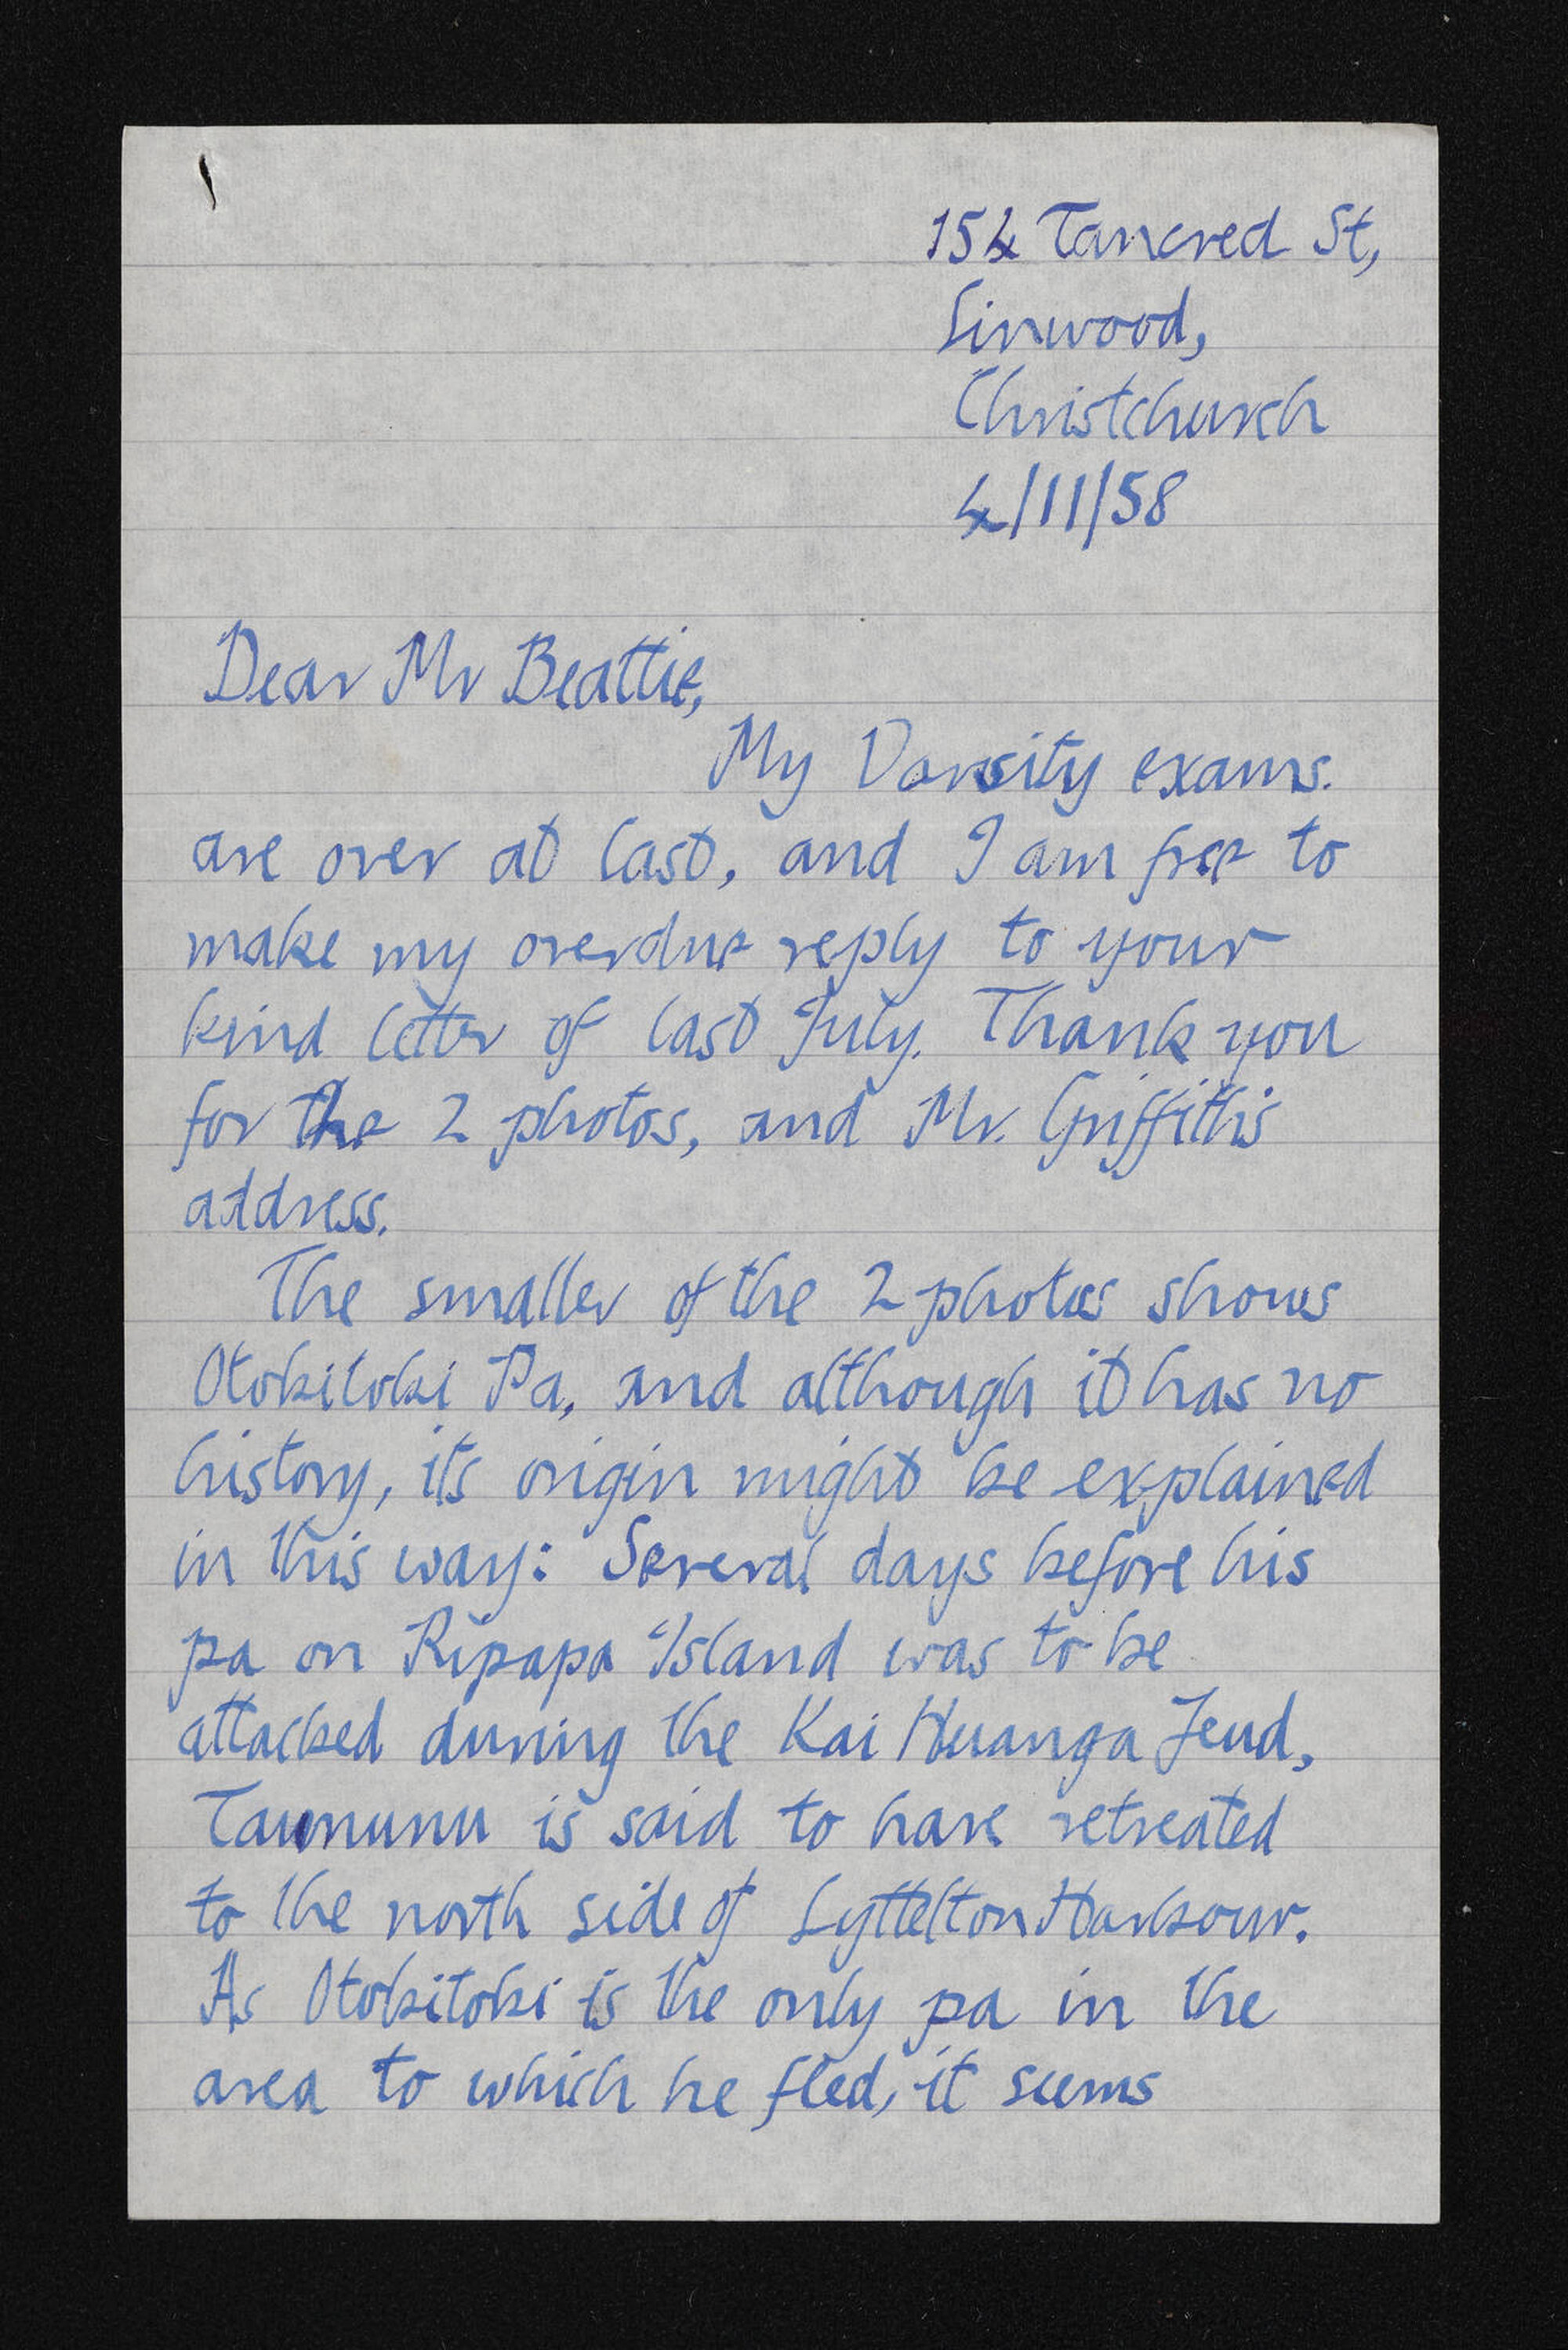 154 Tancred St,
Linwood,
Christchurch
4/11/58
Dear Mr Beattie,
My Varsity exams.
are over at last, and I am free to
make my overdue reply to your
kind letter of last July. Thank you
for the 2 photos, and Mr. Griffiths
address.
The smaller of the 2 photos shows
Otokitoki Pa, and although it has no
history, its origin might be explained
in this way: Several days before his
pa on Ripapa Island was to be
attacked during the Kai Huanga Feud,
Taununu is said to have retreated
to the north side of Lyttelton Harbour.
As Otokitoki is the only pa in the
area to which he fled, it seems